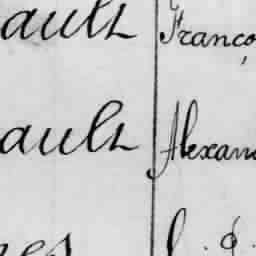 ault Franço
ault Alexan
nes